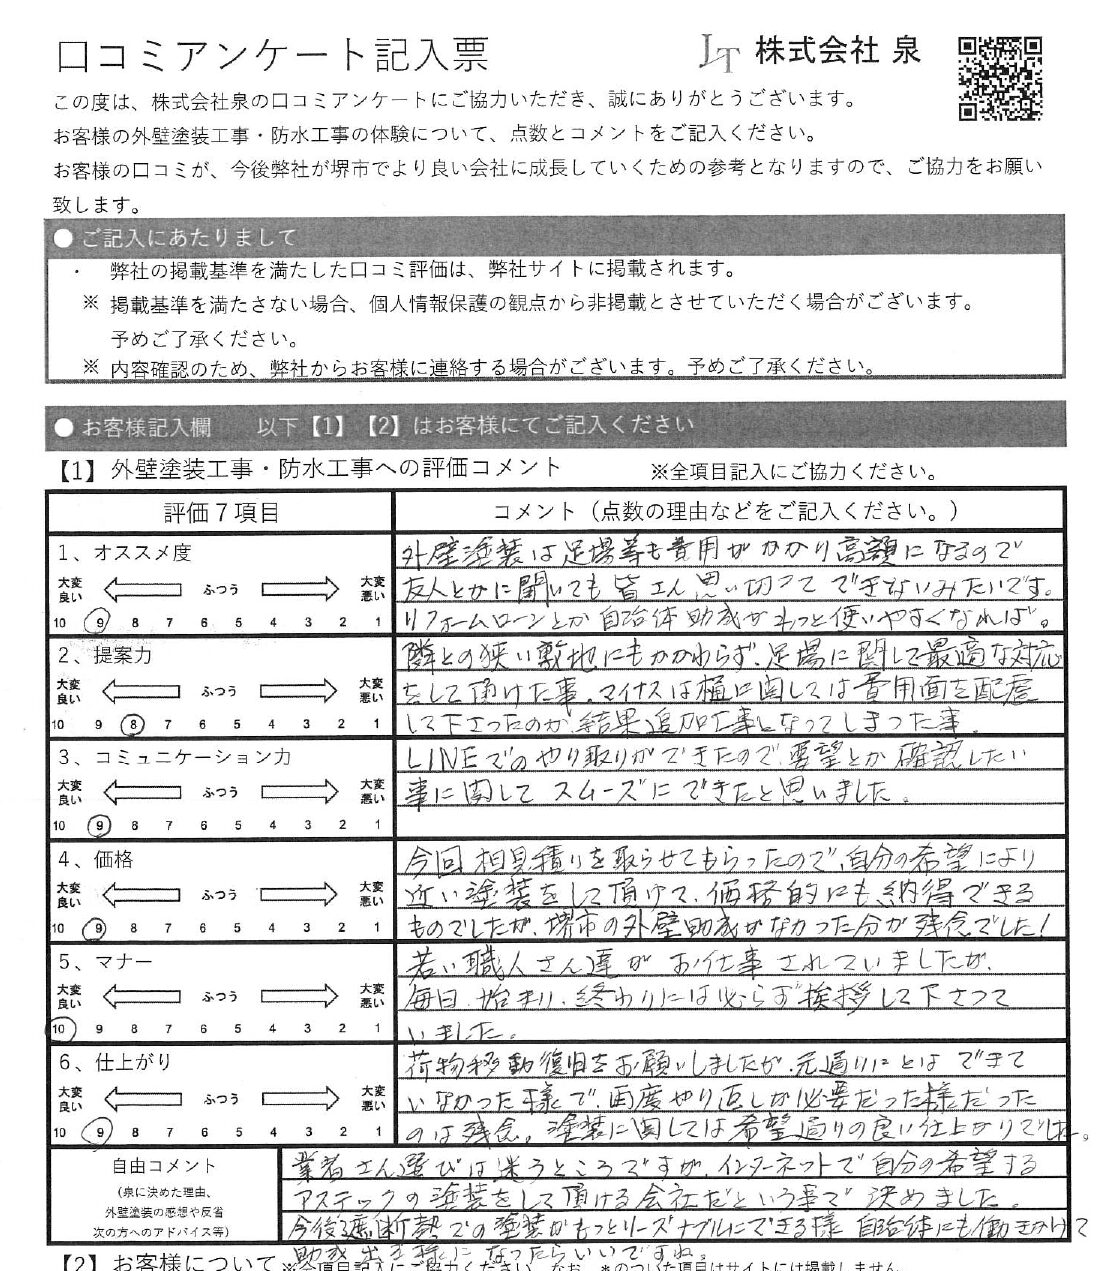 口コミアンケート記入票
JT 株式会社 泉
この度は、株式会社泉の口コミアンケートにご協力いただき、誠にありがとうございます。
お客様の外壁塗装工事・防水工事の体験について、点数とコメントをご記入ください。
お客様の口コミが、今後弊社が堺市でより良い会社に成長していくための参考となりますので、ご協力をお願い
致します。
● ご記入にあたりまして
・ 弊社の掲載基準を満たした口コミ評価は、弊社サイトに掲載されます。
※ 掲載基準を満たさない場合、個人情報保護の観点から非掲載とさせていただく場合がございます。
予めご了承ください。
※ 内容確認のため、弊社からお客様に連絡する場合がございます。予めご了承ください。
● お客様記入欄 以下【1】【2】はお客様にてご記入ください
【1】外壁塗装工事・防水工事への評価コメント ※全項目記入にご協力ください。
評価7項目
コメント（点数の理由などをご記入ください。）
1、オススメ度
大変良い ふつう 大変悪い
10 9 8 7 6 5 4 3 2 1
外壁塗装は足場等も費用がかかり高額になるので
友人とかに聞いても皆さん思い切ってできないみたいです。
リフォームローンとか自治体助成がもっと使いやすくなれば。
2、提案力
大変良い ふつう 大変悪い
10 9 8 7 6 5 4 3 2 1
隣との狭い敷地にもかかわらず、足場に関して最適な対応
をして頂けた事。マイナスは樋に関しては費用面を配慮
して下さったのが結果追加工事になってしまった事。
3、コミュニケーション力
大変良い ふつう 大変悪い
10 9 8 7 6 5 4 3 2 1
LINEでのやり取りができたので、要望とか確認したい
事に関してスムーズにできたと思いました。
4、価格
大変良い ふつう 大変悪い
10 9 8 7 6 5 4 3 2 1
今回相見積りを取らせてもらったので、自分の希望により
近い塗装をして頂けて、価格的にも納得できる
ものでしたが、堺市の外壁助成がなかった分が残念でした!
5、マナー
大変良い ふつう 大変悪い
10 9 8 7 6 5 4 3 2 1
若い職人さん達がお仕事されていましたが、
毎日、始まり、終わりには必らず挨拶して下さって
いました。
6、仕上がり
大変良い ふつう 大変悪い
10 9 8 7 6 5 4 3 2 1
荷物移動復旧をお願いしましたが、元通りにとはできて
いなかった様で、再度やり直しが必要だった様だった
のは残念。塗装に関しては希望通りの良い仕上がりでした。
自由コメント
（泉に決めた理由、
外壁塗装の感想や反省
次の方へのアドバイス等）
業者さん選びは迷うところですが、インターネットで自分の希望する
アステックの塗装をして頂ける会社だという事で決めました。
今後遮断熱での塗装がもっとリーズナブルにできる様 自治体にも働きかけて
助成出る様になったらいいですね。
【2】お客様について ※全項目記入にご協力ください。なお、*のついた項目はサイトには掲載しません。